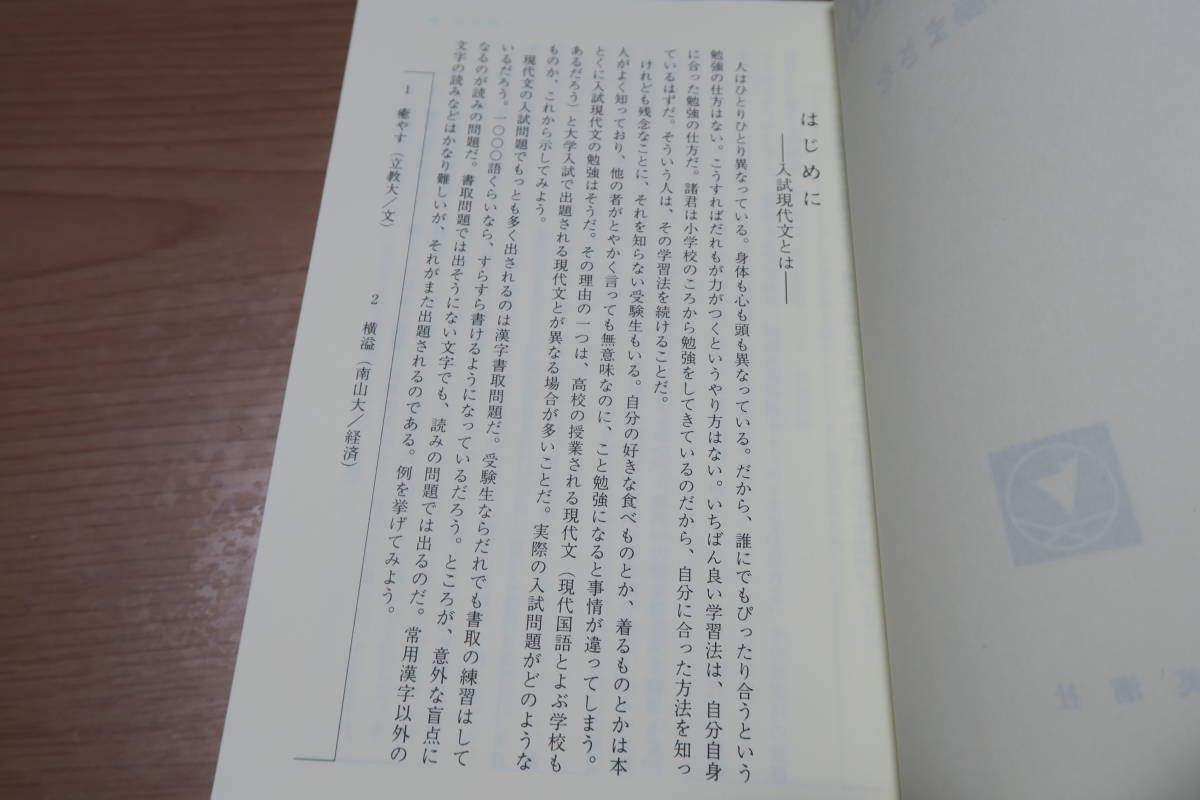 はじめに
――入試現代文とは――
人はひとりひとり異なっている。身体も心も頭も異なっている。だから、誰にでもぴったり合うという
勉強の仕方はない。こうすればだれもが力がつくというやり方はない。いちばん良い学習法は、自分自身
に合った勉強の仕方だ。諸君は小学校のころから勉強をしてきているのだから、自分に合った方法を知っ
ているはずだ。そういう人は、その学習法を続けることだ。
けれども残念なことに、それを知らない受験生もいる。自分の好きな食べものとか、着るものとかは本
人がよく知っており、他の者がとやかく言っても無意味なのに、こと勉強になると事情が違ってしまう。
とくに入試現代文の勉強はそうだ。その理由の一つは、高校の授業される現代文（現代国語とよぶ学校も
あるだろう）と大学入試で出題される現代文とが異なる場合が多いことだ。実際の入試問題がどのような
ものか、これから示してみよう。
現代文の入試問題でもっとも多く出されるのは漢字書取問題だ。受験生ならだれでも書取の練習はして
いるだろう。一〇〇〇語くらいなら、すらすら書けるようになっているだろう。ところが、意外な盲点に
なるのが読みの問題だ。書取問題では出そうにない文字でも、読みの問題では出るのだ。常用漢字以外の
文字の読みなどはかなり難しいが、それがまた出題されるのである。例を挙げてみよう。
1 癒やす（立教大／文）
2 横溢（南山大／経済）